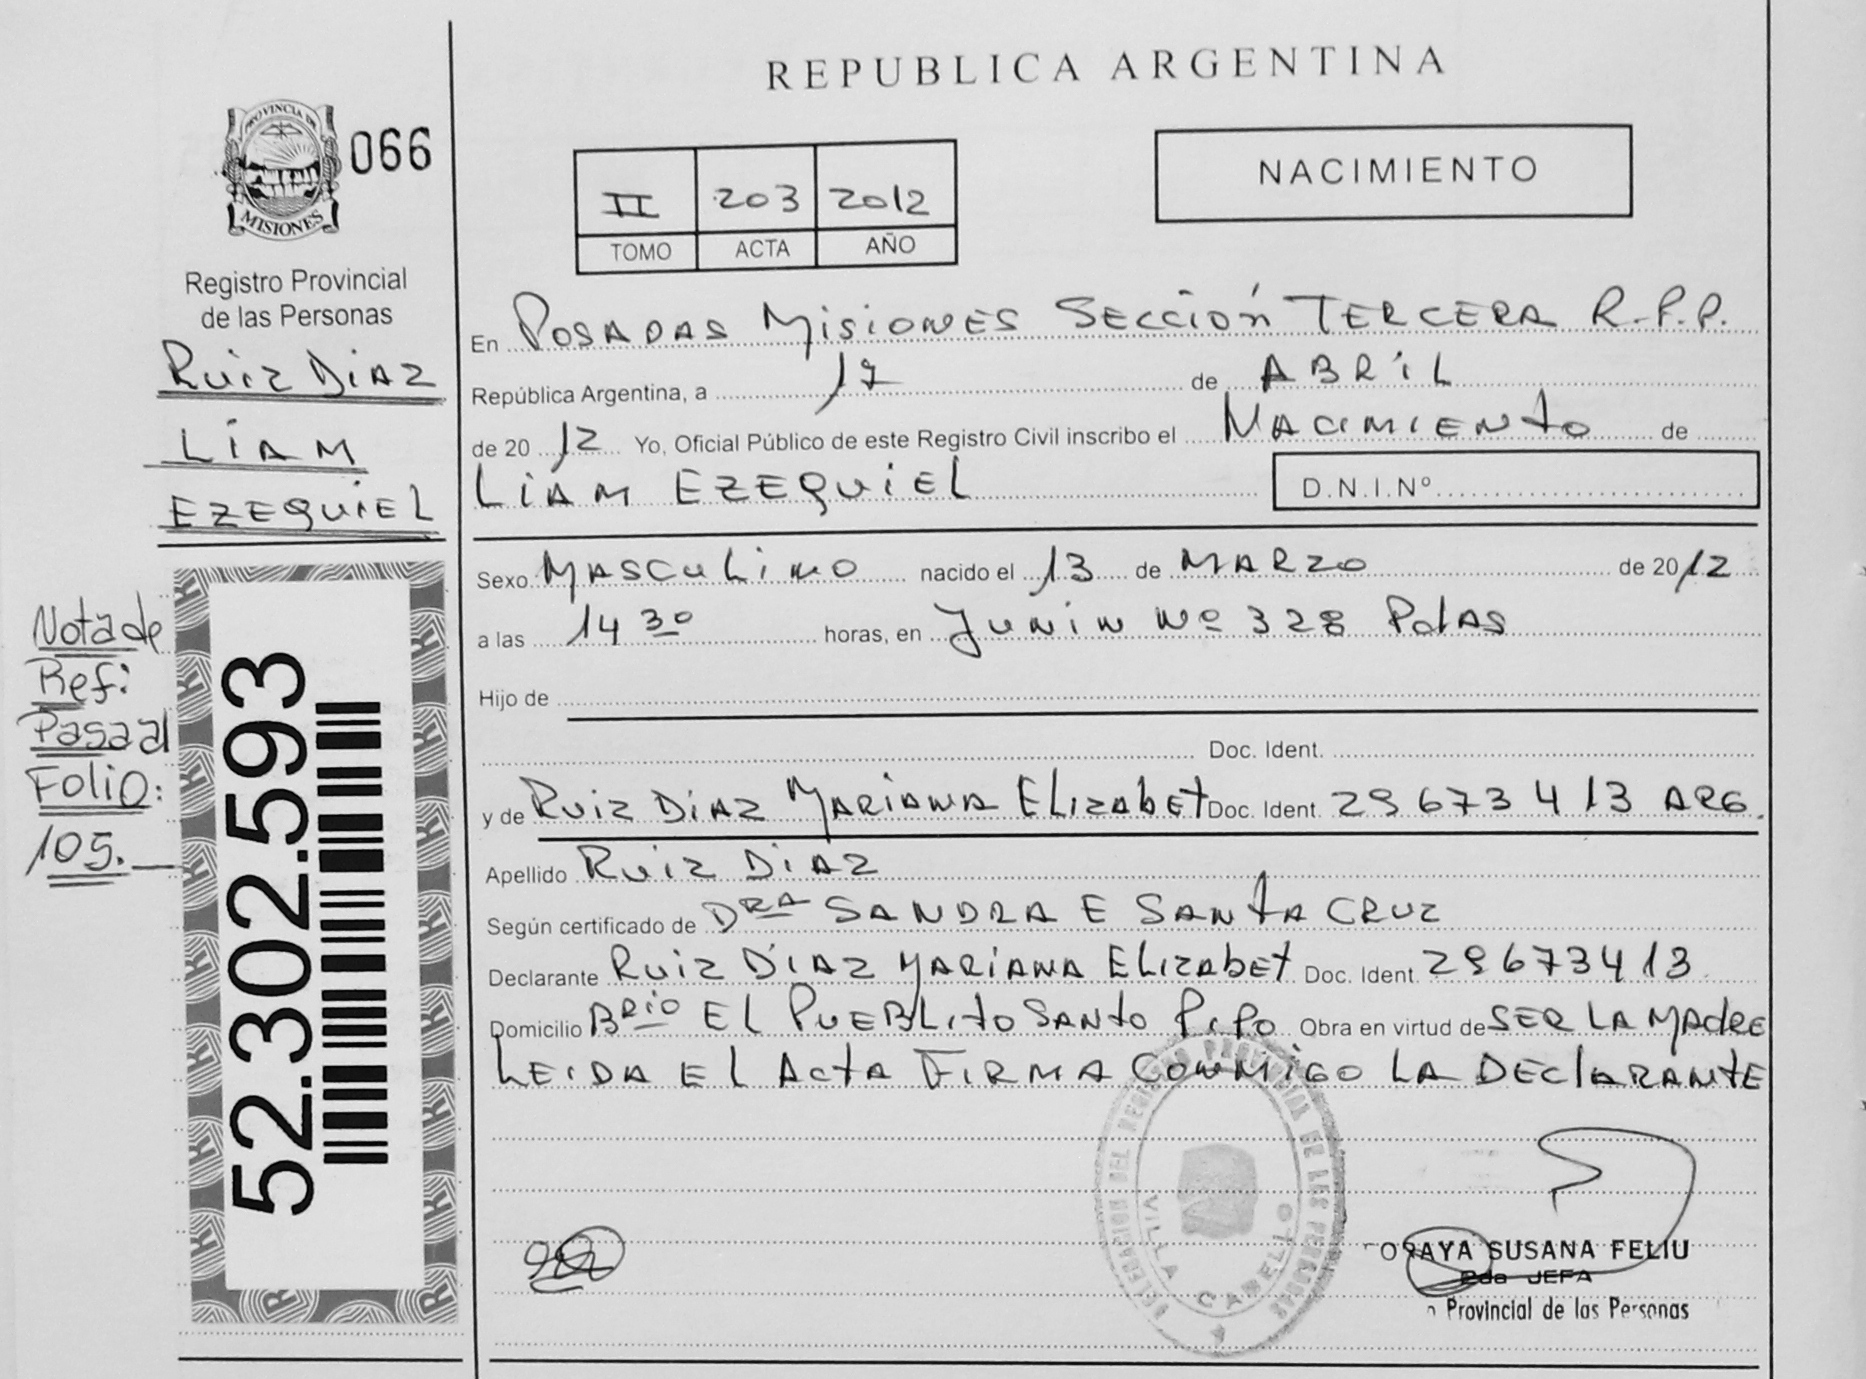 REPUBLICA ARGENTINA
PROVINCIA DE
MISIONES
066
Registro Provincial
de las Personas
Ruiz DiAZ
LiAM
EZEQUiEL
Nota de
Ref:
Pasa al
Folio:
105.
52.302.593
II 203 2012
TOMO ACTA AÑO
NACIMIENTO
En POSADAS MisiONES SECCióN TERCERA R.P.P.
República Argentina, a 17 de ABRiL
de 20 12 Yo, Oficial Público de este Registro Civil inscribo el NACIMIENto de
LiAM EZEQUiEL D.N.I.Nº
Sexo MASCuLiNO nacido el 13 de MARZO de 2012
a las 14 30 horas, en JUNiN Nº 328 PdAS
Hijo de
Doc. Ident.
y de RuiZ DiAZ MARiANA ELizAbEt Doc. Ident. 29673413 ARG.
Apellido RuiZ DiAZ
Según certificado de DRA SANDRA E SANtA CRUZ
Declarante RuiZ DiAZ MARiANA ELizAbEt Doc. Ident. 29673413
Domicilio BRiO EL PUEBLito SANto PiPO Obra en virtud de SER LA MAdRE
LEiDA EL ActA FiRMA CONMiGO LA DEClARANtE
DELEGACION DEL REGISTRO PROVINCIAL DE LAS PERSONAS
VILLA CABELLO
ORAYA SUSANA FELIU
2da JEFA
Provincial de las Personas